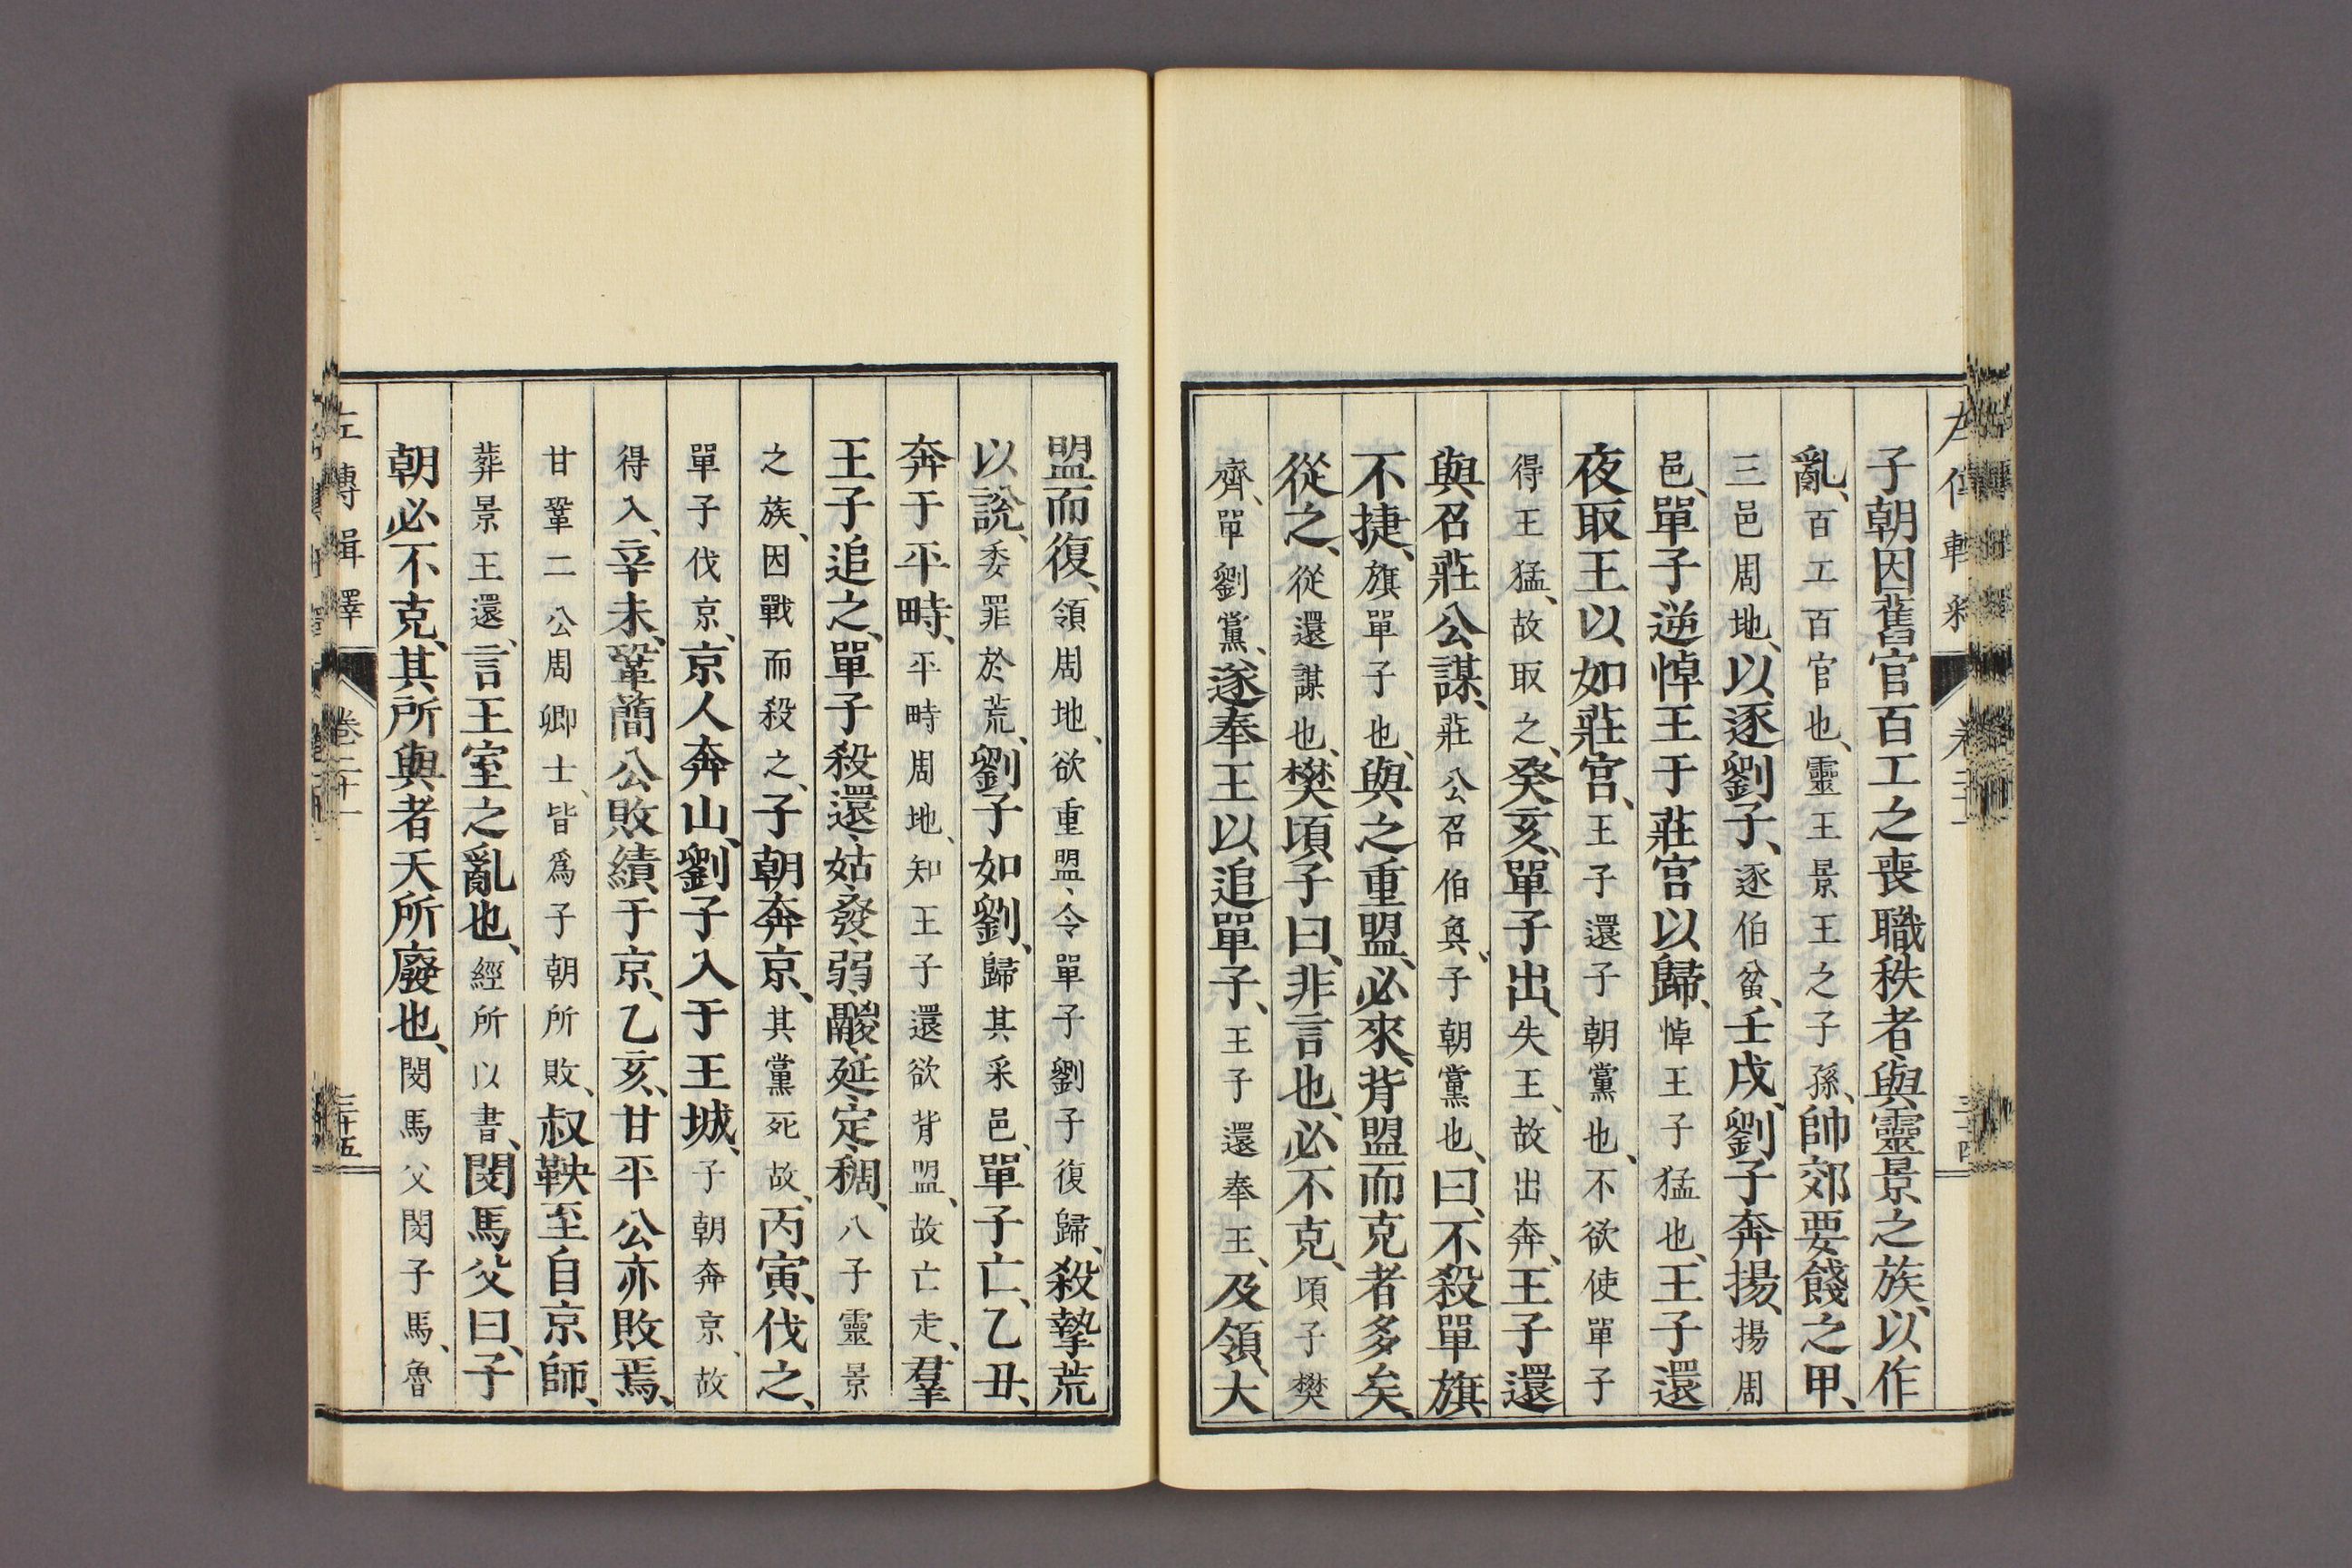 子朝因舊官百工之喪職秩者、與靈景之族、以作
亂、百工百官也、靈王景王之子孫、帥郊要餞之甲、
三邑周地、以逐劉子、逐伯蚠、壬戌、劉子奔揚、揚周
邑、單子逆悼王于莊宮以歸、悼王子猛也、王子還
夜取王以如莊宮、王子還子朝黨也、不欲使單子
得王猛、故取之、癸亥、單子出、失王、故出奔、王子還
與召莊公謀、莊公召伯奐、子朝黨也、曰、不殺單旗、
不捷、旗單子也、與之重盟、必來、背盟而克者多矣、
從之、從還謀也、樊頃子曰、非言也、必不克、頃子樊
齊、單劉黨、遂奉王以追單子、王子還奉王、及領、大
盟而復、領周地、欲重盟、令單子劉子復歸、殺摯荒
以說、委罪於荒、劉子如劉、歸其采邑、單子亡、乙丑、
奔于平畤、平畤周地、知王子還欲背盟、故亡走、羣
王子追之、單子殺還、姑、發、弱、鬷、延、定、稠、八子靈景
之族、因戰而殺之、子朝奔京、其黨死故、丙寅、伐之、
單子伐京、京人奔山、劉子入于王城、子朝奔京、故
得入、辛未、鞏簡公敗績于京、乙亥、甘平公亦敗焉、
甘鞏二公周卿士、皆爲子朝所敗、叔鞅至自京師、
葬景王還、言王室之亂也、經所以書、閔馬父曰、子
朝必不克、其所與者天所廢也、閔馬父閔子馬、魯
左傳輯釋 卷二十一 三十五